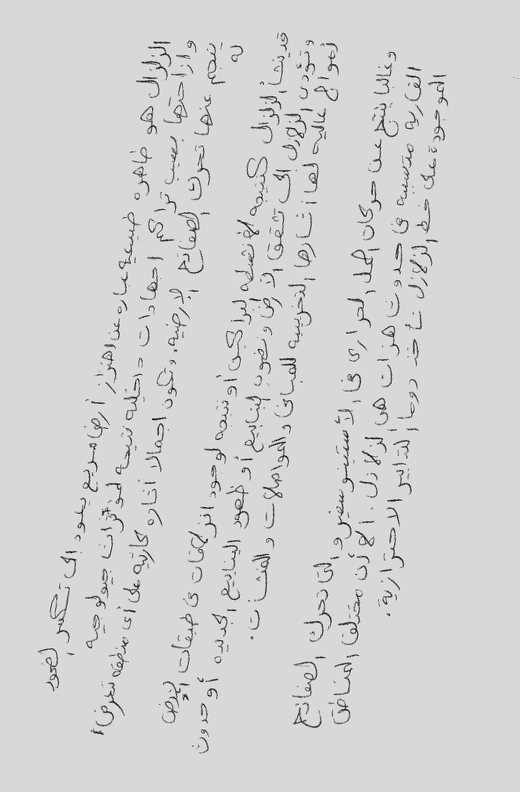 الزلزال هو ظاهره طبيعيه عباره عن اهتزاز أرضي سريع يعود إلى تكسر الصخور
وازاحتها بسبب تراكم اجهادات داخليه نتيجه لمؤثرات جيولوجيه
ينجم عنها تحرك الصفائح الارضيه. وتكون اجمالا آثاره كارثيه على أي منطقه تتعرض
له
قد ينشأ الزلزال كنتيجه لأنشطه البراكين أو نتيجه لوجود انزلاقات في طبقات الارض
وتؤدي الزلازل إلى تشقق الارض ونضوب الينابيع أو ظهور الينابيع الجديده أو حدوث
أمواج عاليه لها آثارها التخريبيه للمباني والمواصلات والمنشآت.
وغالبا ينتج عن حركات الحمل الحراري في الأستينوسفير والتي تحرك الصفائح
القاريه متسببه في حدوث هزات هي الزلازل. الا أن مختلف المناطق
الموجودة على خط الزلازل تأخذ دوما التدابير الاحترازية.